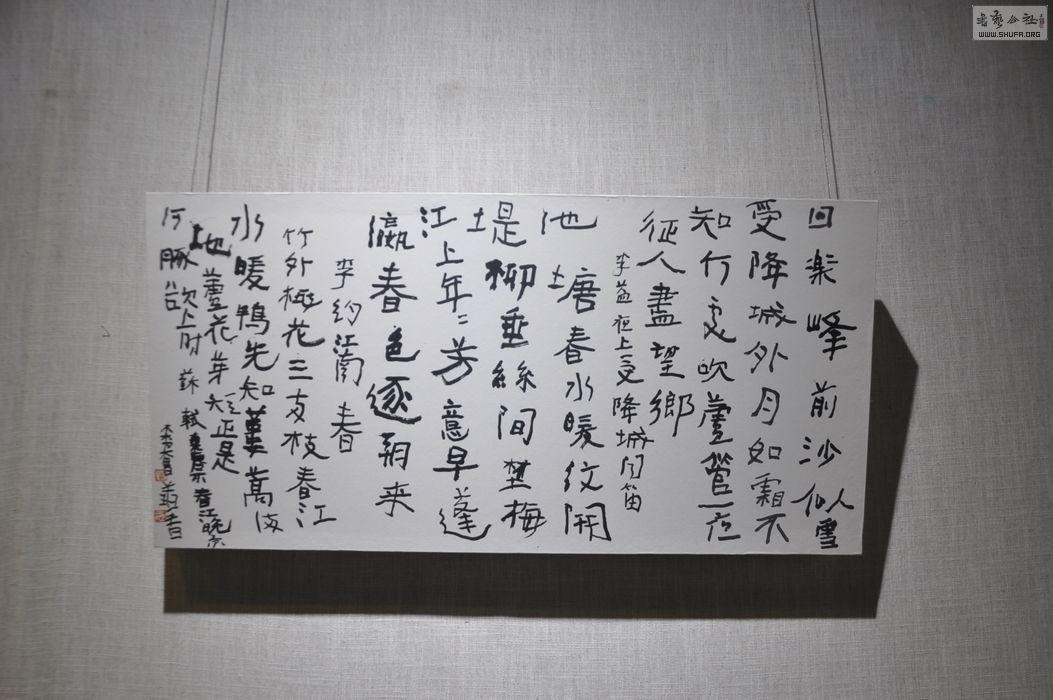 回樂峰前沙似雪
受降城外月如霜不
知何處吹蘆管一夜
征人盡望鄉
李益夜上受降城聞笛
池塘春水暖紋開
堤柳垂絲間埜梅
江上年二芳意早蓬
瀛春色逐朝来
李約江南春
竹外桃花三支枝春江
水暖鴨先知蔞蒿滿
地蘆花芽短正是
河豚欲上时 蘇軾惠崇春江晚
書
書藝公社
WWW.SHUFA.ORG